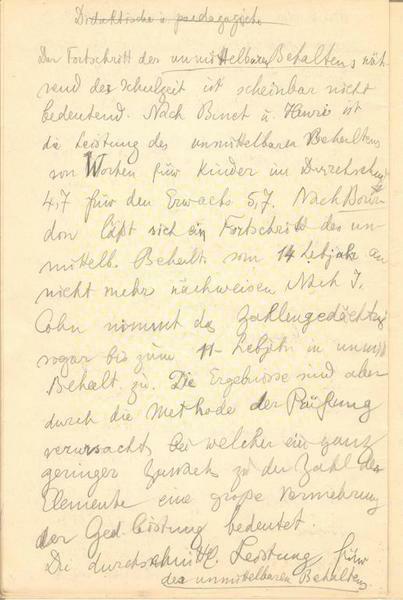 Didaktische u paedagogische
Der Fortschritt des unmittelbaren Behaltens wäh-
rend der Schulzeit ist scheinbar nicht
bedeutend. Nach Binet u. Henri ist
die Leistung des unmittelbaren Behaltens
von Worten für Kinder im Durchschn.
4,7 für den Erwachs 5,7. Nach Bour-
don läßt sich ein Fortschritt des un-
mittelb. Behalt. vom 14 Lebjahr an
nicht mehr nachweisen Nach J.
Cohn nimmt das Zahlengedächtnis
sogar bis zum 11. Lebjahr in unmitt
Behalt. zu. Die Ergebnisse sind aber
durch die Methode der Prüfung
verursacht, bei welcher ein ganz
geringer Zuwachs zu der Zahl der
Elemente eine große Vermehrung
der Ged. leistung bedeutet.
Die durchschnittl. Leistung für
des unmittelbaren Behaltens